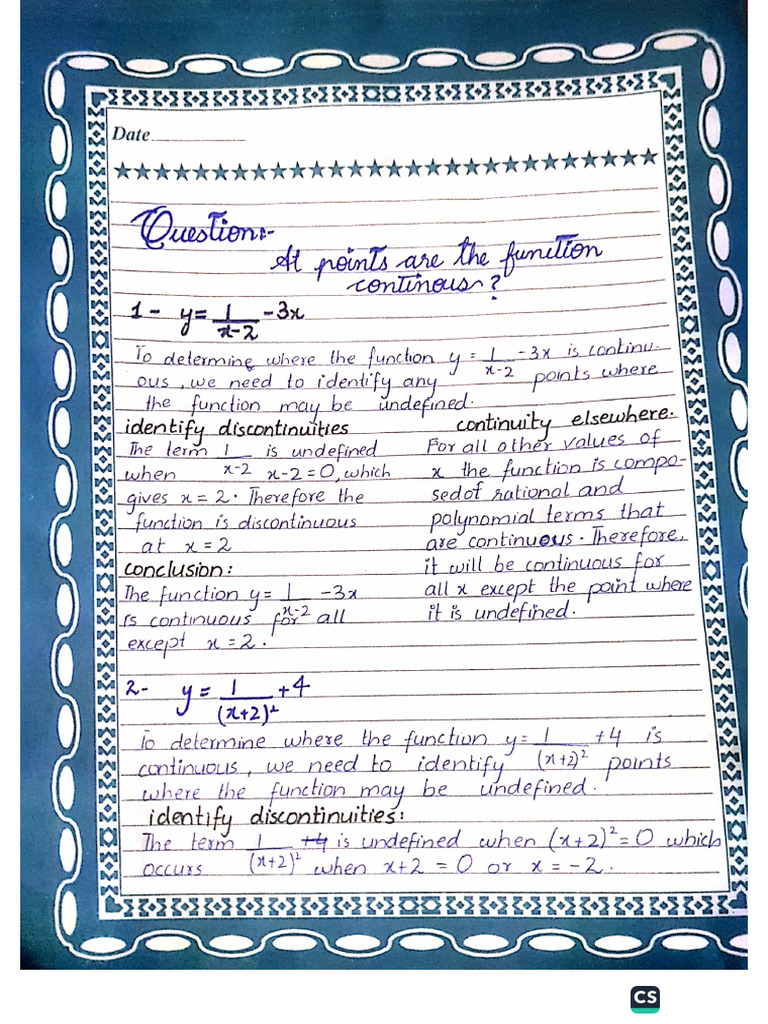 Date
Question:-
At points are the function
continous?
1- y= 1/(x-2) -3x
To determine where the function y = 1/(x-2) -3x is continu-
ous, we need to identify any points where
the function may be undefined.
identify discontinuities
The term 1/(x-2) is undefined
when x-2=0, which
gives x=2. Therefore the
function is discontinuous
at x=2
conclusion:
The function y= 1/(x-2) -3x
is continuous for all
except x=2.
continuity elsewhere.
For all other values of
x the function is compo-
sed of rational and
polynomial terms that
are continuous. Therefore,
it will be continuous for
all x except the point where
it is undefined.
2- y = 1/(x+2)² +4
To determine where the function y= 1/(x+2)² +4 is
continuous, we need to identify points
where the function may be undefined.
identify discontinuities:
The term 1/(x+2)² +4 is undefined when (x+2)²=0 which
occurs when x+2 = 0 or x = -2.
CS